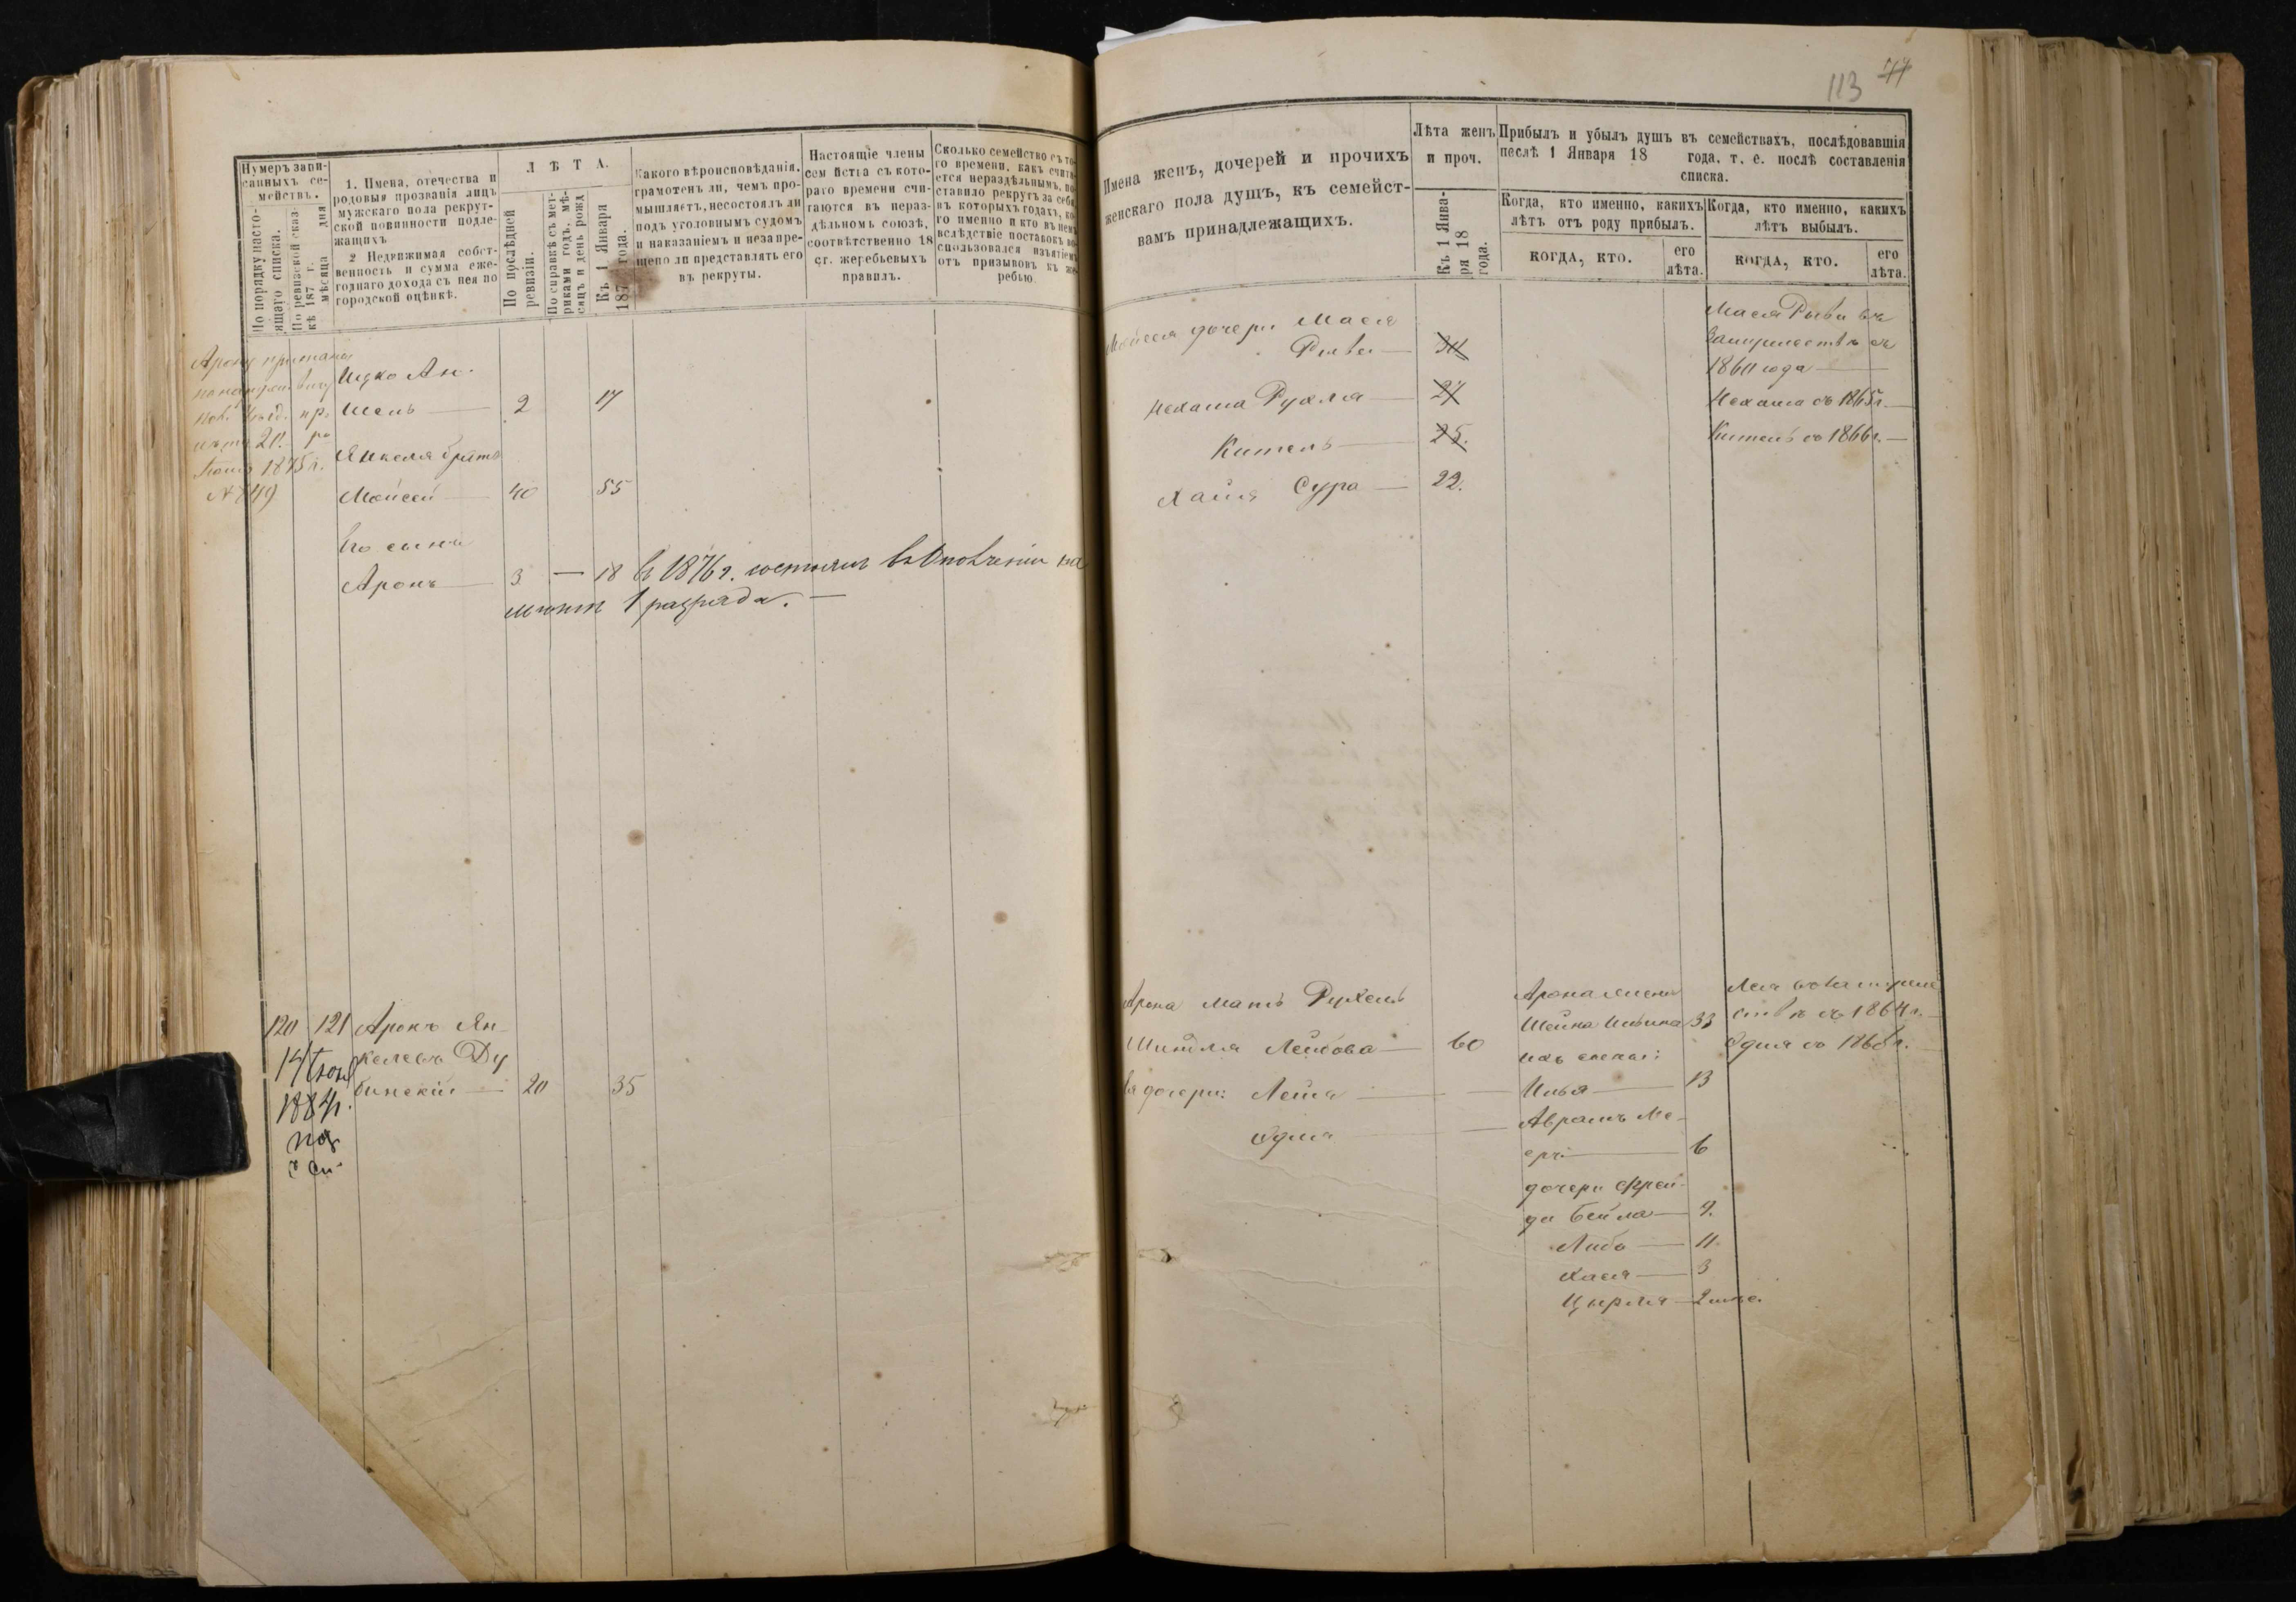 Нумеръ запи-
санныхъ се-
мействъ.
По порядку насто-
ящаго списка.
По ревизской сказ-
кѣ 187 г.
мѣсяца дня
1. Имена, отечества и
родовыя прозванія лицъ
мужскаго пола рекрут-
ской повинности подле-
жащихъ
2 Недвижимая собст-
венность и сумма еже-
годнаго дохода съ нея по
городской оцѣнкѣ.
ЛѢТА.
По послѣдней
ревизіи.
По справкѣ съ мет-
риками годъ, мѣ-
сяцъ и день рожд
Къ 1 Января
187 года.
Какого вѣроисповѣданія,
грамотенъ ли, чѣмъ про-
мышляетъ, несостоялъ ли
подъ уголовнымъ судомъ
и наказаніемъ и незапре-
щено ли представлять его
въ рекруты.
Настоящіе члены
сем йства съ кото-
раго времени счи-
таются въ нераз-
дѣльномъ союзѣ,
соотвѣтственно 18
ст. жеребьевыхъ
правилъ.
Сколько семейство съ то-
го времени, какъ счита-
ется нераздѣльнымъ, по-
ставило рекрутъ за себя
въ которыхъ годахъ, ко-
го именно и кто въ немъ
вслѣдствіе поставокъ во-
спользовался изъятіемъ
отъ призывовъ къ же-
ребью
Арону
20.
1875 г.
№ 749
Ицко Ан-
шель 2 17
Янкеля братъ
Мойсей 40 55
Его сынъ
Аронъ 3 — 18 въ 1876 г. 
1 разряда. —
120 121 Аронъ Ян-
келевъ Ду
бинскій 20 35
14
1884 г.
113
Имена женъ, дочерей и прочихъ
женскаго пола душъ, къ семейст-
вамъ принадлежащихъ.
Лѣта женъ
и проч.
Къ 1 Янва-
ря 18
года.
Прибылъ и убылъ душъ въ семействахъ, послѣдовавшія
песлѣ 1 Января 18 года, т. е. послѣ составленія
списка.
Когда, кто именно, какихъ
лѣтъ отъ роду прибылъ.
КОГДА, КТО.
его
лѣта.
Когда, кто именно, какихъ
лѣтъ выбылъ.
КОГДА, КТО.
его
лѣта.
Мойсея дочери Мася
Рива
Нехама Рухля 27
Китель 25.
Хаия Сура 22.
Мася Рива въ
замужествѣ съ
1860 года
Нехама съ 1865 г.
Китель съ 1866 г.
Арона мать Рухель
Шиндля Лейбова 60
Ея дочери: Лейа
Одля
Арона жена
Шейна 33
ихъ сыновья:
Илья 13
Абрамъ Ме-
еръ 6
дочери Фрей-
да Бейла 9.
Либа 11
Хася 3
Цырля 2 мѣс.
Лея въ замуже
ствѣ съ 1864 г.
Одля съ 1868 г.